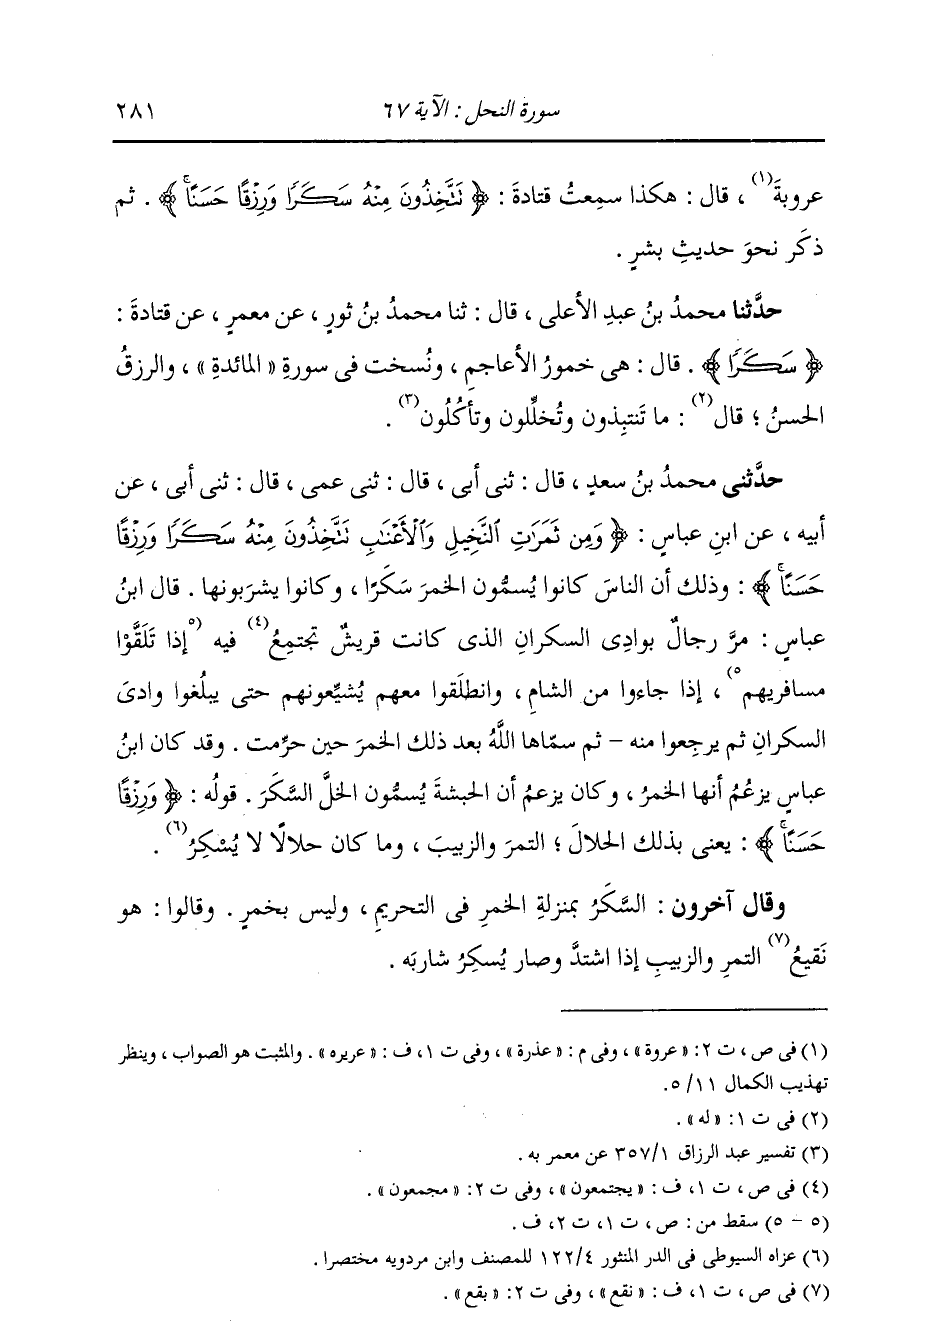 سورة النحل : الآية ٦٧ ٢٨١
عروبةَ(١) ، قال : هكذا سمِعتُ قتادةَ : ﴿ نَتَّخِذُونَ مِنْهُ سَكَرًا وَرِزْقًا حَسَنًا ﴾ . ثم
ذكَر نحوَ حديثِ بشرٍ .
حدَّثنا محمدُ بنُ عبدِ الأعلى ، قال : ثنا محمدُ بنُ ثورٍ ، عن معمرٍ ، عن قتادةَ :
﴿ سَكَرًا ﴾ . قال : هى خمورُ الأعاجمِ ، ونُسخت فى سورةِ « المائدةِ » ، والرزقُ
الحسنُ ؛ قال(٢) : ما تَنتبِذون وتُخلِّلون وتأكُلُون(٣) .
حدَّثنى محمدُ بنُ سعدٍ ، قال : ثنى أبى ، قال : ثنى عمى ، قال : ثنى أبى ، عن
أبيه ، عن ابنِ عباسٍ : ﴿ وَمِن ثَمَرَٰتِ ٱلنَّخِيلِ وَٱلْأَعْنَٰبِ نَتَّخِذُونَ مِنْهُ سَكَرًا وَرِزْقًا
حَسَنًا ﴾ : وذلك أن الناسَ كانوا يُسمُّون الخمرَ سَكَرًا ، وكانوا يشرَبونها . قال ابنُ
عباسٍ : مرَّ رجالٌ بوادِى السكرانِ الذى كانت قريشٌ تجتمِعُ(٤) فيه (٥إذا تَلَقَّوْا
مسافريهم٥) ، إذا جاءوا من الشامِ ، وانطلَقوا معهم يُشيِّعونهم حتى يبلُغوا وادىَ
السكرانِ ثم يرجِعوا منه – ثم سمّاها اللَّهُ بعد ذلك الخمرَ حين حرِّمت . وقد كان ابنُ
عباسٍ يزعُمُ أنها الخمرُ ، وكان يزعم أن الحبشةَ يُسمُّون الخلَّ السَّكَرَ . قولُه : ﴿ وَرِزْقًا
حَسَنًا ﴾ : يعنى بذلك الحلالَ ؛ التمرَ والزبيبَ ، وما كان حلالًا لا يُسْكِرُ(٦) .
وقال آخرون : السَّكَرُ بمنزلةِ الخمرِ فى التحريمِ ، وليس بخمرٍ . وقالوا : هو
نَقيعُ(٧) التمرِ والزبيبِ إذا اشتدَّ وصار يُسكِرُ شاربَه .
(١) فى ص ، ت ٢: « عروة » ، وفى م : « عذرة » ، وفى ت ١، ف : « عريره » . والمثبت هو الصواب ، وينظر
تهذيب الكمال ١١/ ٥.
(٢) فى ت ١: « له » .
(٣) تفسير عبد الرزاق ٣٥٧/١ عن معمر به .
(٤) فى ص ، ت ١، ف : « يجتمعون » ، وفى ت ٢: « مجمعون » .
(٥ - ٥) سقط من : ص ، ت ١، ت ٢، ف .
(٦) عزاه السيوطى فى الدر المنثور ١٢٢/٤ للمصنف وابن مردويه مختصرا .
(٧) فى ص ، ت ١، ف : « نقع » ، وفى ت ٢: « بقع » .